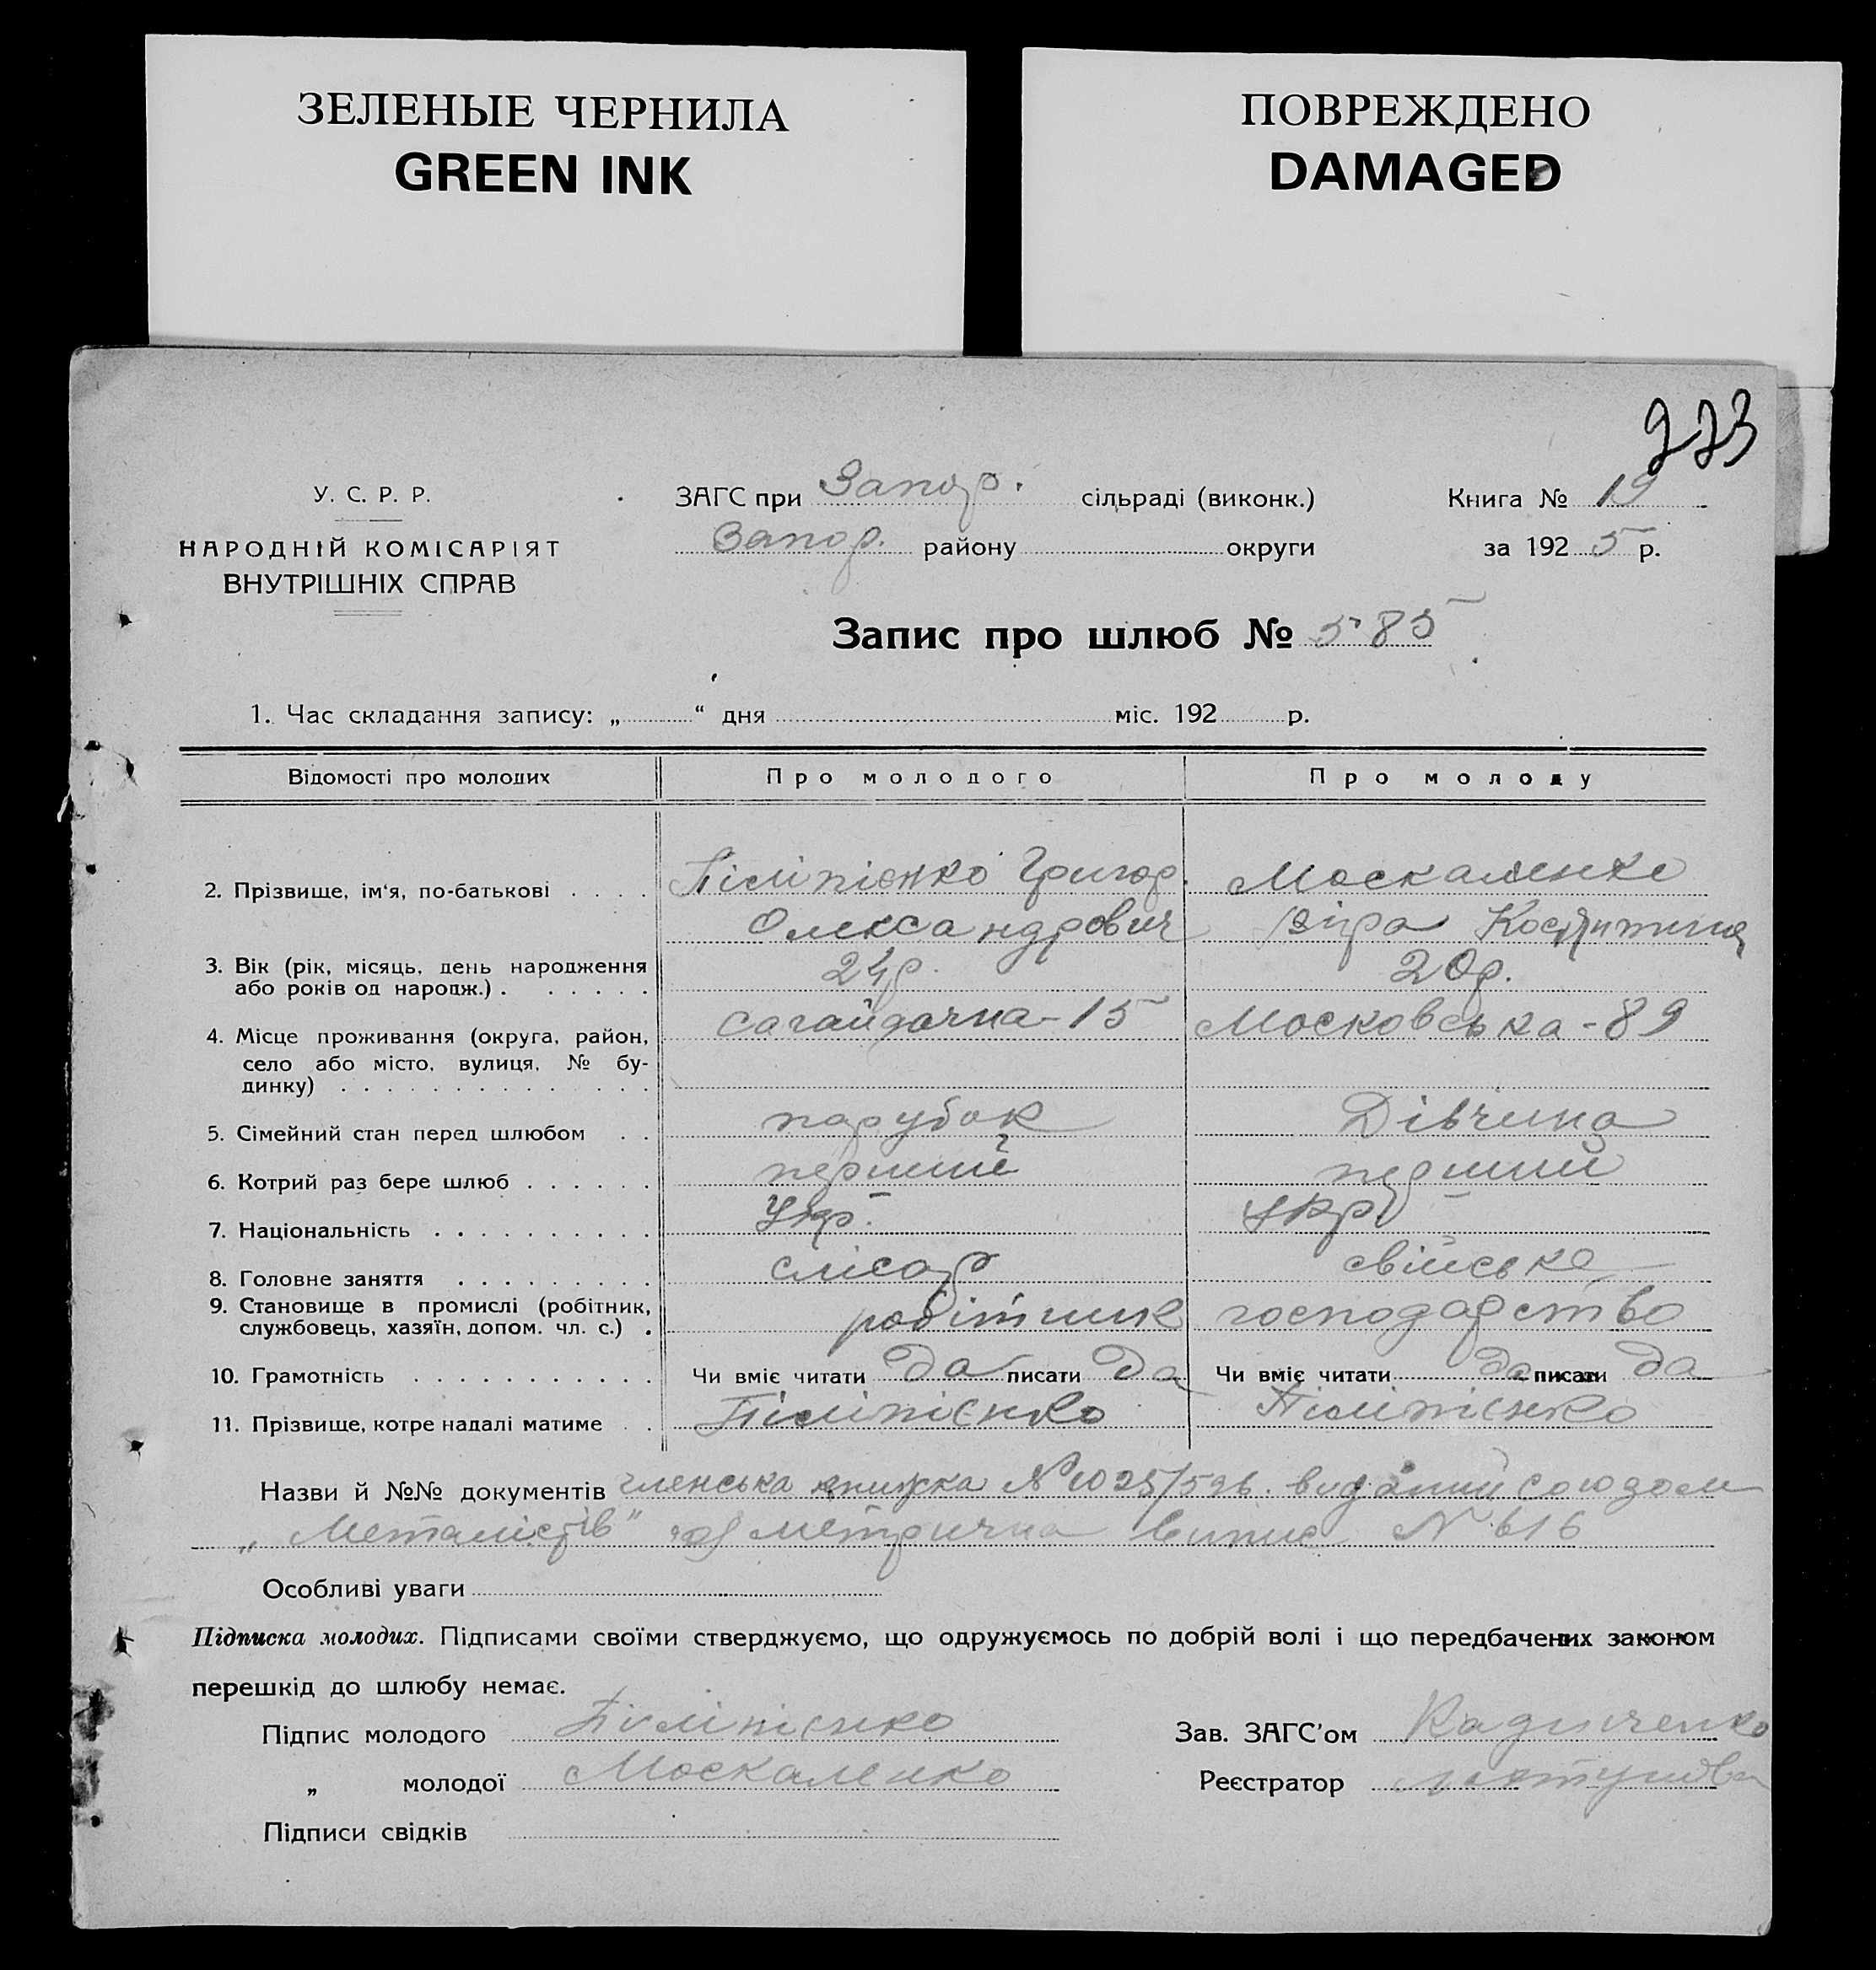 ЗЕЛЕНЫЕ ЧЕРНИЛА
GREEN INK
ПОВРЕЖДЕНО
DAMAGED
У. С. Р. Р.
НАРОДНІЙ КОМІСАРІЯТ
ВНУТРІШНІХ СПРАВ
ЗАГС при Запор. сільраді (виконк.)
Запор. району округи
Книга № 19
за 1925 р.
Запис про шлюб № 585
1. Час складання запису: „ “ дня міс. 192 р.
Відомості про молодих Про молодого Про молоду
2. Прізвище, ім‘я, по-батькові . . . . Піліпієнко Григор. Москаленко
Олександрович Віра
3. Вік (рік, місяць, день народження
або років од народж.) . . . . . . 24р. 20р.
4. Місце проживання (округа, район, Сагайдачна-15 Московська-89
село або місто, вулиця, № бу-
динку) . . . . . . . . . . . . .
5. Сімейний стан перед шлюбом . . парубок Дівчина
6. Котрий раз бере шлюб . . . . . . перший перший
7. Національність . . . . . . . . . . Укр. Укр
8. Головне заняття . . . . . . . . . слісар свійське
9. Становище в промислі (робітник,
службовець, хазяїн, допом. чл. с.) . робітник господарство
10. Грамотність . . . . . . . . . . . Чи вміє читати да писати да Чи вміє читати да писати да
11. Прізвище, котре надалі матиме . . Піліпієнко Піліпієнко
Назви й №№ документів членська книжка № виданий союзом
„Металістів" метрична випис № 616
Особливі уваги
Підписка молодих. Підписами своїми стверджуємо, що одружуємось по добрій волі і що передбачених законом
перешкід до шлюбу немає.
Підпис молодого Піліпієнко Зав. ЗАГС’ом
„ молодої Москаленко Реєстратор
Підписи свідків